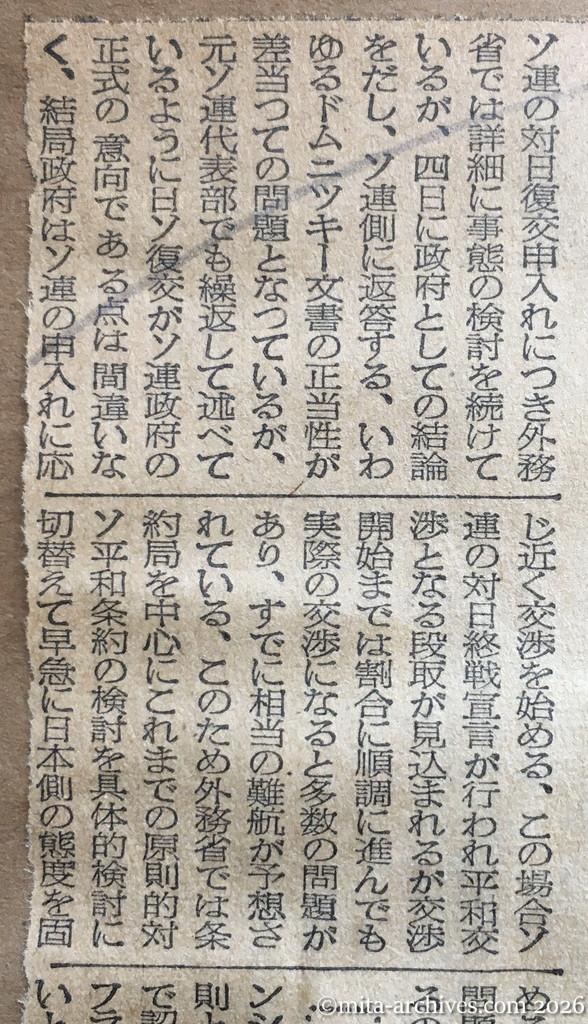 ソ連の対日復交申入れにつき外務
省では詳細に事態の検討を続けて
いるが、四日に政府としての結論
をだし、ソ連側に返答する、いわ
ゆるドムニツキー文書の正当性が
差当つての問題となつているが、
元ソ連代表部でも繰返して述べて
いるように日ソ復交がソ連政府の
正式の意向である点は間違いな
く、結局政府はソ連の申入れに応
じ近く交渉を始める、この場合ソ
連の対日終戦宣言が行われ平和交
渉となる段取が見込まれるが交渉
開始までは割合に順調に進んでも
実際の交渉になると多数の問題が
あり、すでに相当の難航が予想さ
れている、このため外務省では条
約局を中心にこれまでの原則的対
ソ平和条約の検討を具体的検討に
切替えて早急に日本側の態度を固
め
問
る
ン
則と
で認
フラ
いと
©mita-archives.com 2026